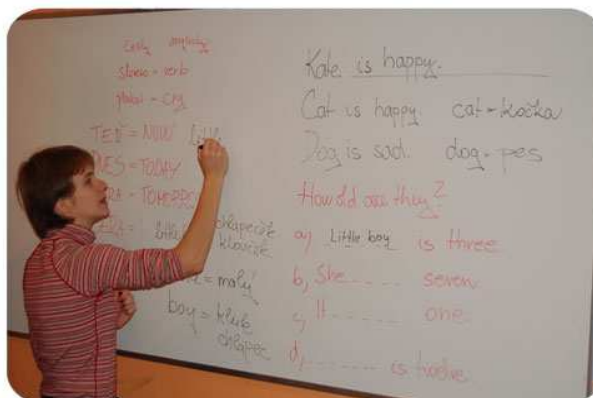 sloveso = verb
plakat = cry
TEĎ = NOW Littl
= TODAY
= TOMORRO
chlapeček
klouček
= malý
boy = kluk
chlapec
Kate is happy.
Cat is happy. cat = kočka
Dog is sad. dog = pes
How old are they?
a, Little boy is three
b, She _ _ _ _ seven
c, It _ _ _ _ one
d, _ _ _ _ _ is twelve